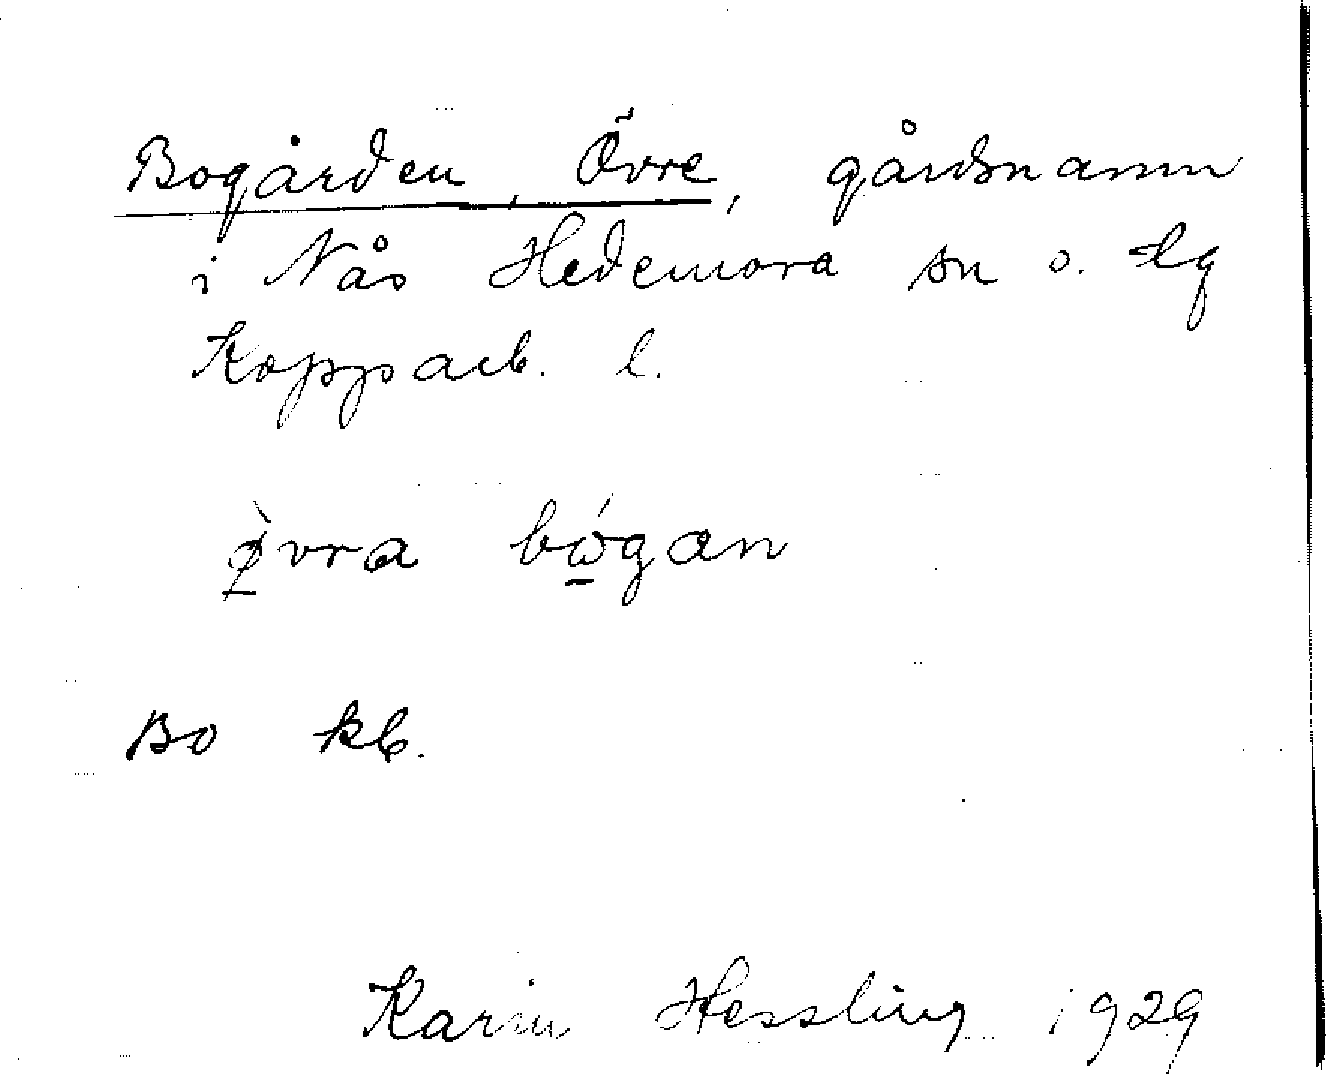 Bogården, Övre, gårdsnamn
i Nås Hedemora sn o. tlg
Kopparb. l.
ø̀vra bώgan
Bo kb.
Karin Hessling 1929